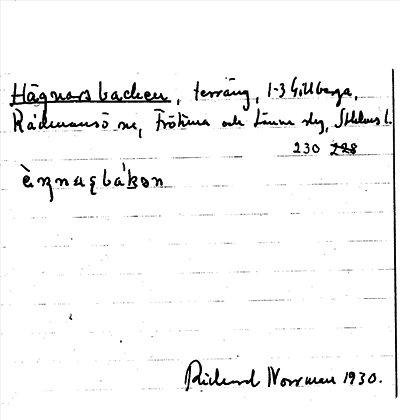 Hägnarsbacken, terräng, 1-3 Gillberga,
Rådmansö sn, Frötuna och Länna skg, Sthlms l.
230 228
Rickard Norrman 1930.